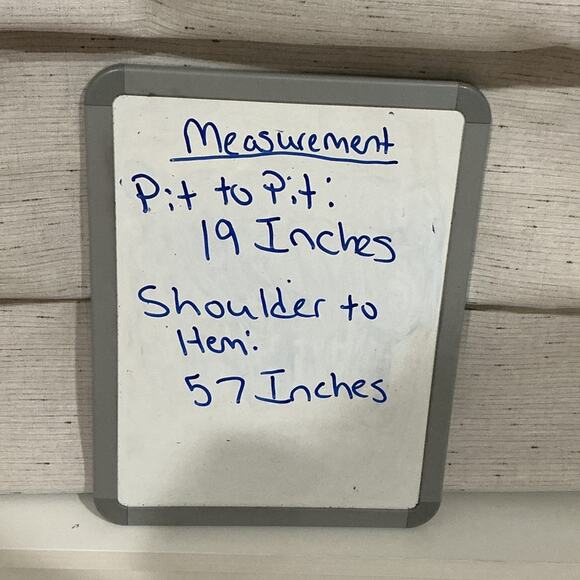 Measurement
Pit to Pit:
19 Inches
Shoulder to
Hem:
57 Inches